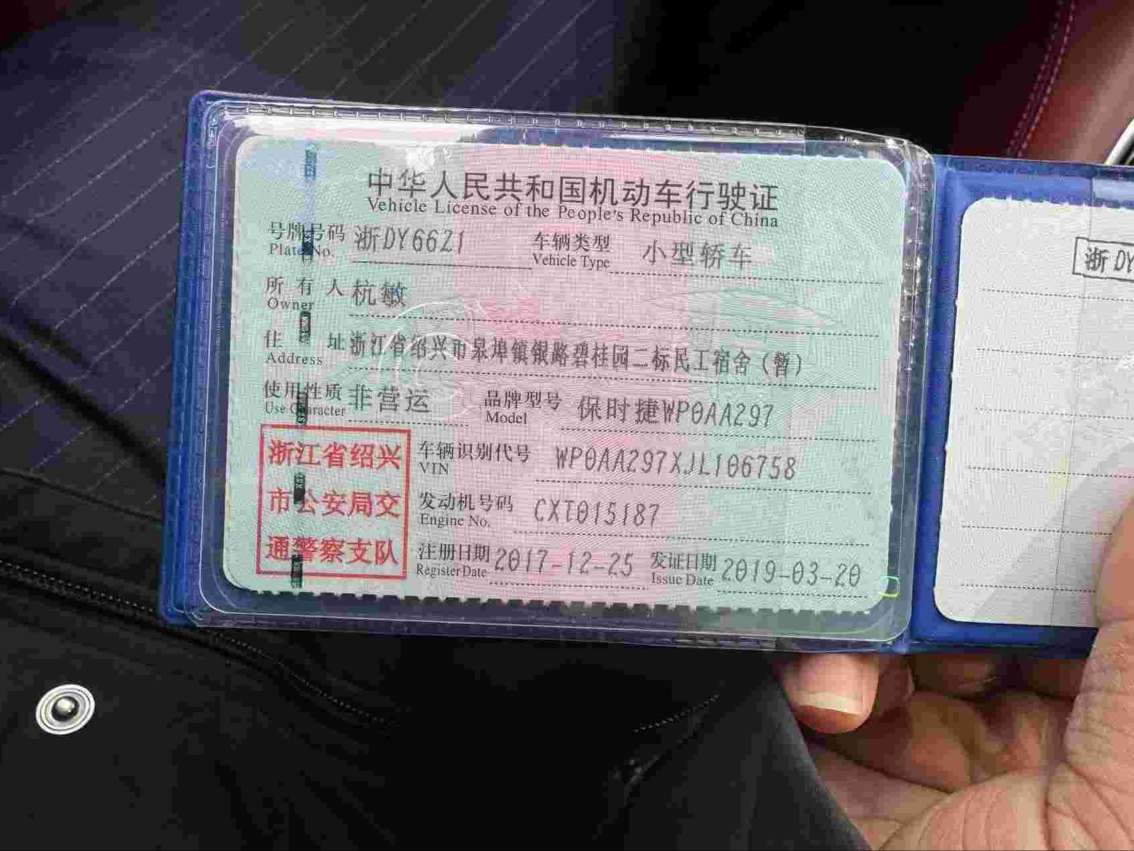 中华人民共和国机动车行驶证
Vehicle License of the People's Republic of China
号牌号码 浙DY66Z1 车辆类型 小型轿车
Plate No. Vehicle Type
所有人 杭敏
Owner
住址 浙江省绍兴市皋埠镇银路碧桂园二标民工宿舍（暂）
Address
使用性质 非营运 品牌型号 保时捷WP0AA297
Use Character Model
浙江省绍兴
市公安局交
通警察支队
车辆识别代号 WP0AA297XJL106758
VIN
发动机号码 CXT015187
Engine No.
注册日期 2017-12-25 发证日期 2019-03-20
Register Date Issue Date
浙DY